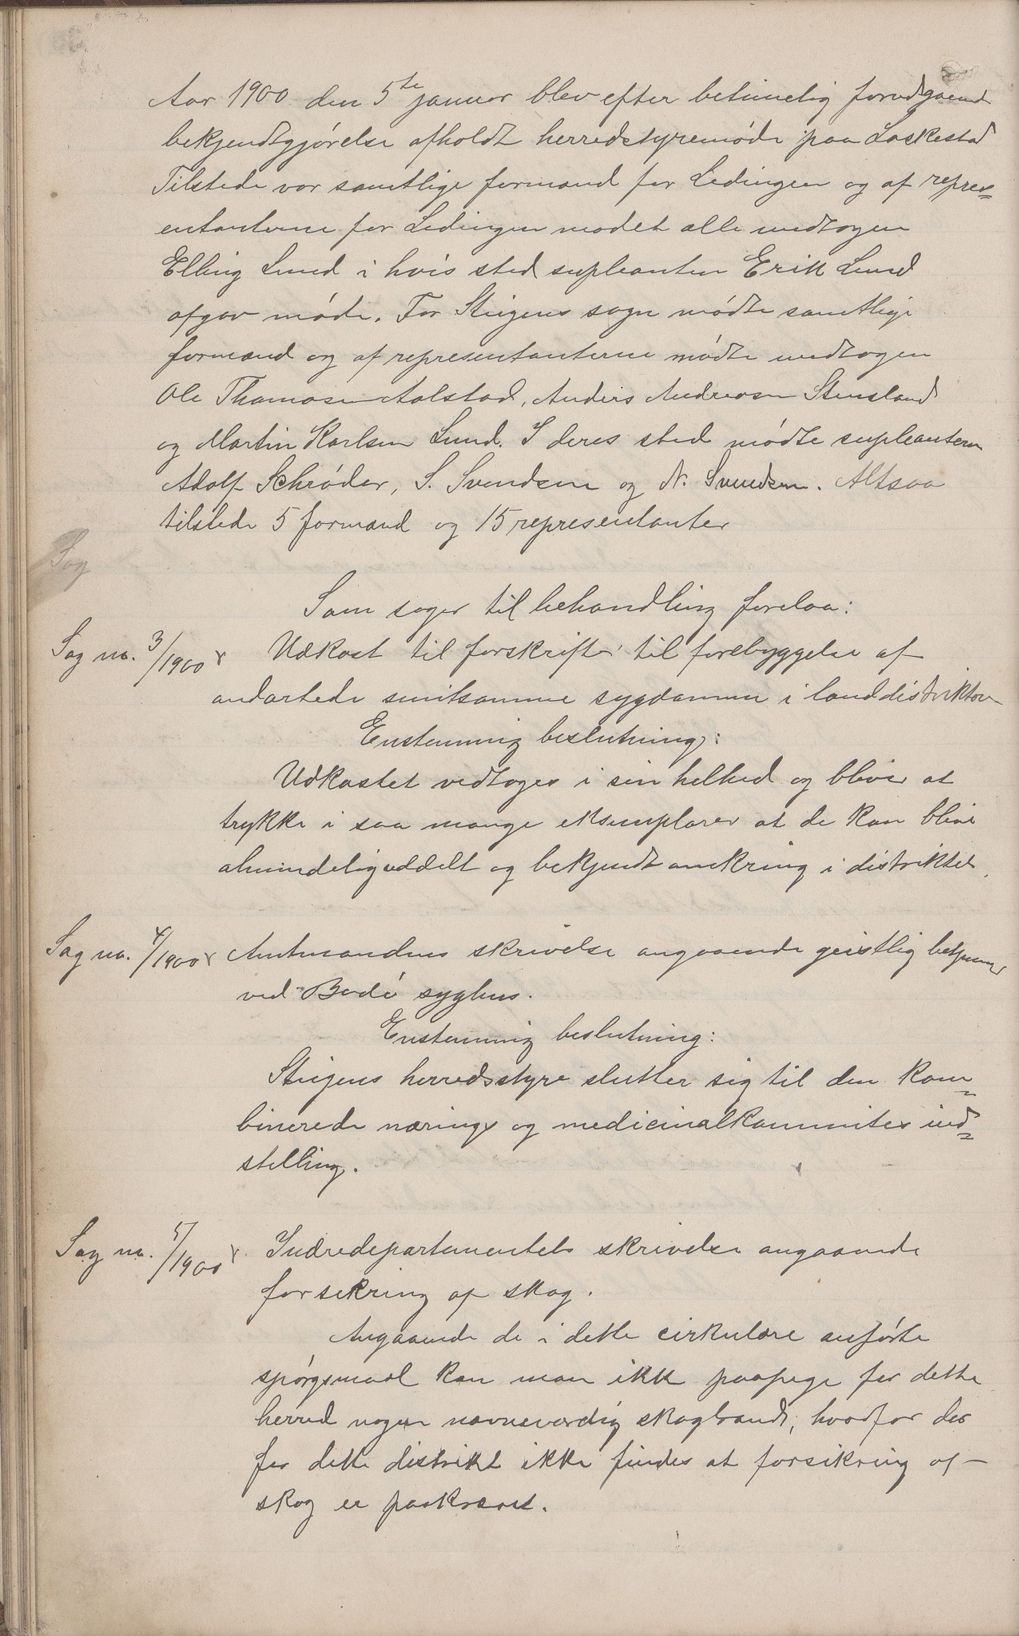 Aar 1900 den 5te januar blev efter betimelig forudgaaend
bekjendtgjørelse afholdt herredstyremøde paa Laskestad
Tilstede var samtlige formænd for Ledingen og af repres=
entanterne for Ledingen mødet alle undtagen
Elling Lund i hvis sted supleanten Erik Lund
afgav møde. For Steigens sogn mødte samtlige
formænd og af representanterne mødte undtagen
Ole Thomasen Aalstad, Anders Andreasen Stensland
og Martin Karlsen Lund. I deres sted mødte supleantern
Adolf Schrøder, S. Svendsen og N. Svendsen. Altsaa
tilstede 5 formænd og 15 representanter
Sag
Som sager til behandling forelaa:
Sag no. 3/1900 x Udkast til forskrifter til forebyggelse af
andartede smitsomme sygdomme i landdistrikter
Enstemmig beslutning:
Udkastet vedtoges i sin helhed og bliver at
trykke i saa mange eksemplarer at de kan blive
almindelig uddelt og bekjendt omkring i distriktet.
Sag no. 4/1900 x Amtmandens skrivelse angaaende geistlig betjening
ved Bodø syghus.
Enstemmig beslutning:
Steigens herredsstyre slutter sig til den kom=
binerede nærings og medicinalkommites ind=
stilling.
Sag no. 5/1900 x Indredepartementets skrivelse angaaende
forsikring af skog.
Angaaende de i dette cirkulære anførte
spørgsmaal kan man ikke paapege for dette
herred nogen nævneværdig skogbrand, hvorfor der
for dette distrikt ikke findes at forsikring af -
skog er paakrævet.